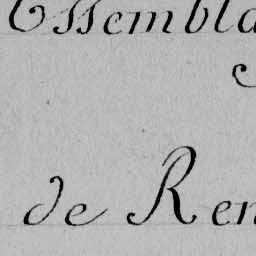 Essembla
de Ren